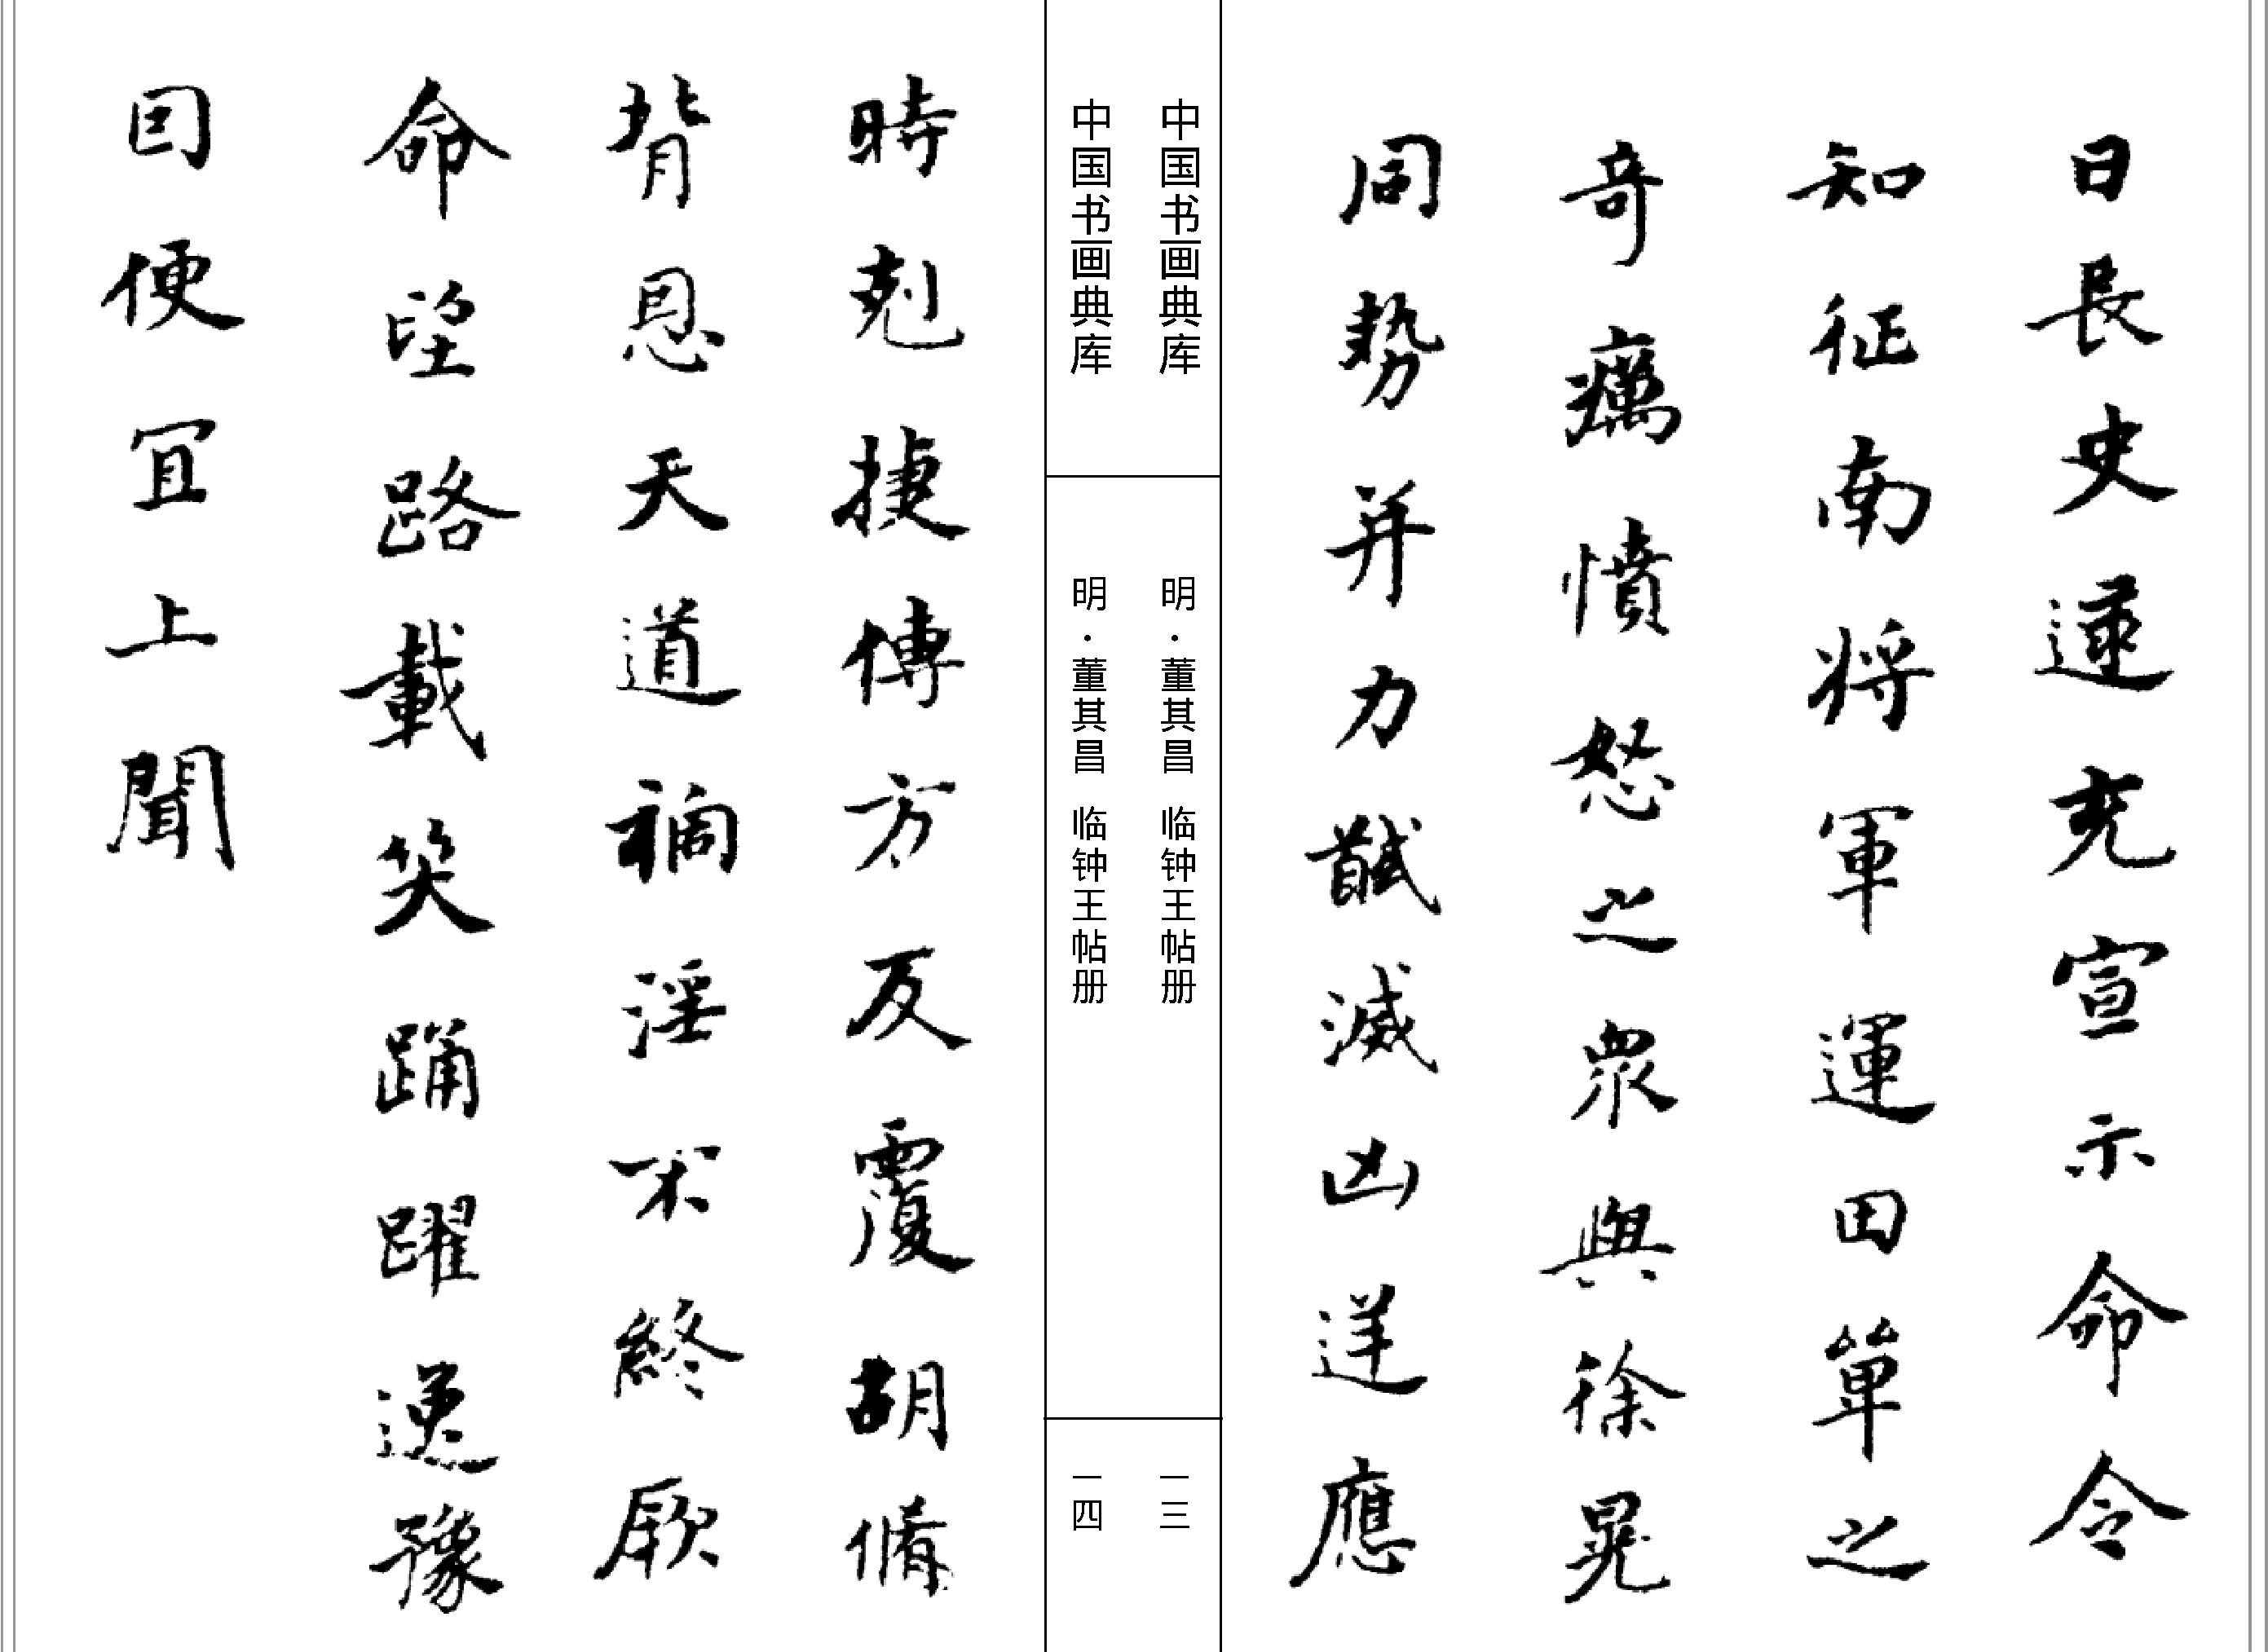 日長史逯充宣示命令
知征南将軍運田單之
奇癘憤怒之衆與徐晃
同勢并力馘滅凶逆應
中国书画典库 明·董其昌 临钟王帖册 一三
中国书画典库 明·董其昌 临钟王帖册 一四
時剋捷傅方反覆胡脩
背恩天道禍淫不終厥
命望路載笑踊躍逸豫
囙便冝上聞